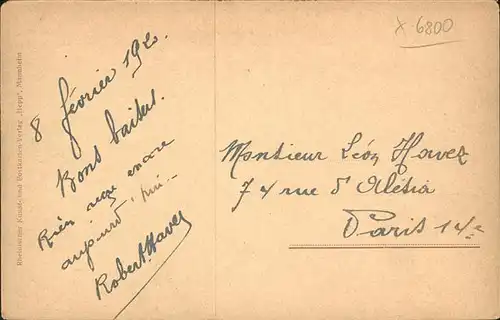 x 6800
8 février 192
Bons baisers.
Rien reçu encore
aujourd'hui.-
Robert Havez
Monsieur Léon Havez
74 rue d'Alésia
Paris 14e
Rheinische Kunst- und Postkarten-Verlag „Hepp", Mannheim